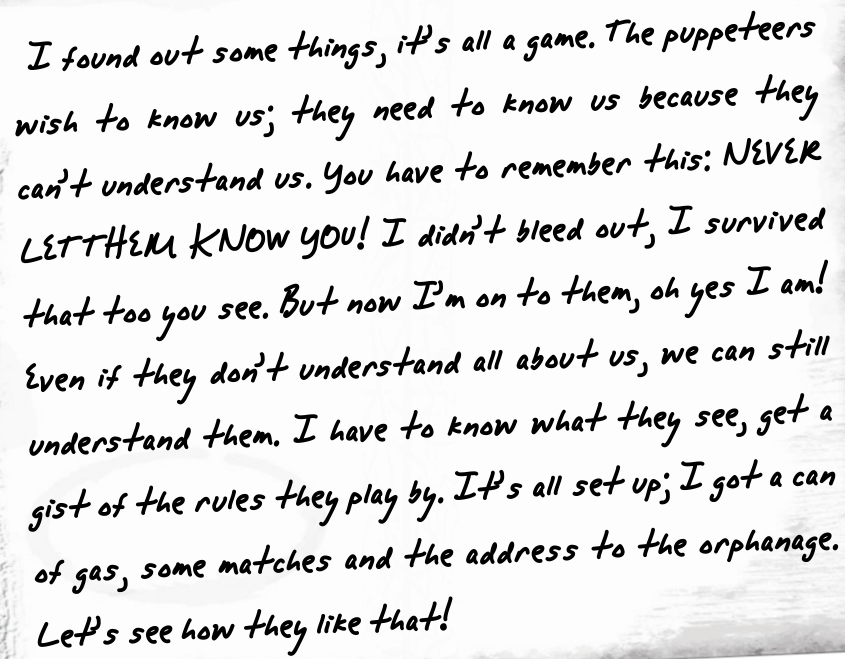 I found out some things, it's all a game. The puppeteers
wish to know us; they need to know us because they
can't understand us. You have to remember this: NEVER
LETTHEM KNOW YOU! I didn't bleed out, I survived
that too you see. But now I'm on to them, oh yes I am!
Even if they don't understand all about us, we can still
understand them. I have to know what they see, get a
gist of the rules they play by. It's all set up; I got a can
of gas, some matches and the address to the orphanage.
Let's see how they like that!